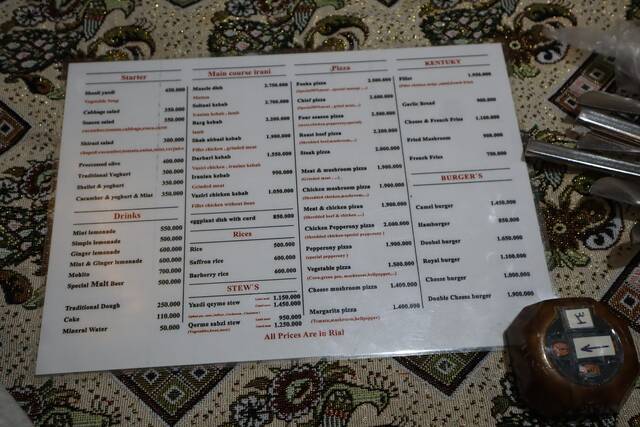 Starter
Shouli yazdi 450.000
Vegetable Soup
Cabbage salad 350.000
Season salad 350.000
Shirazi salad 300.000
Processed olive 400.000
Traditional Yoghurt 300.000
Shallot & yoghurt 350.000
Cucumber & yoghurt & Mint 350.000
Drinks
Mint lemonade 550.000
Simple lemonade 500.000
Ginger lemonade 600.000
Mint & Ginger lemonade 600.000
Mohito 700.000
Special Malt Beer 500.000
Traditional Dough 250.000
Cake 110.000
Mineral Water 50.000
Main course irani
Muscle dish 2.750.000
Mutton
Soltani kebab 2.700.000
Barg kebab 2.200.000
lamb
Shah abbasi kebab 1.900.000
Fillet chicken , grinded meat
Darbari kebab 1.550.000
Vaziri chicken , iranian kebab
Iranian kebab 990.000
Grinded meat
Vaziri chicken kebab 1.050.000
Fillet chicken without Bone
eggplant dish with curd 850.000
Rices
Rice 500.000
Saffron rice 600.000
Barberry rice 600.000
STEW'S
Yazdi qeyme stew 1.150.000
1.450.000
Qorme sabzi stew 950.000
1.250.000
All Prices Are in Rial
Pizza
Fooka pizza 2.900.000
Chief pizza 2.600.000
Four season pizza 2.500.000
Roast beef pizza 2.200.000
Steak pizza 2.000.000
Meat & mushroom pizza 1.900.000
Chicken mushroom pizza 1.900.000
Meat & chicken pizza 1.900.000
Chicken Pepperony pizza 2.000.000
Pepperony pizza 1.900.000
Vegetable pizza 1.500.000
Cheese mushroom pizza 1.400.000
Margarita pizza 1.400.000
(Tomato,mushroom,bellpepper)
KENTUKY
Fillet 1.950.000
Garlic Bread 900.000
Cheese & French Fries 1.100.000
Fried Mushroom 900.000
French Fries 750.000
BURGER'S
Camel burger 1.450.000
Hamburger 850.000
Doubel burger 1.650.000
Royal burger 1.100.000
Cheese burger 1.000.000
Double Cheese burger 1.900.000